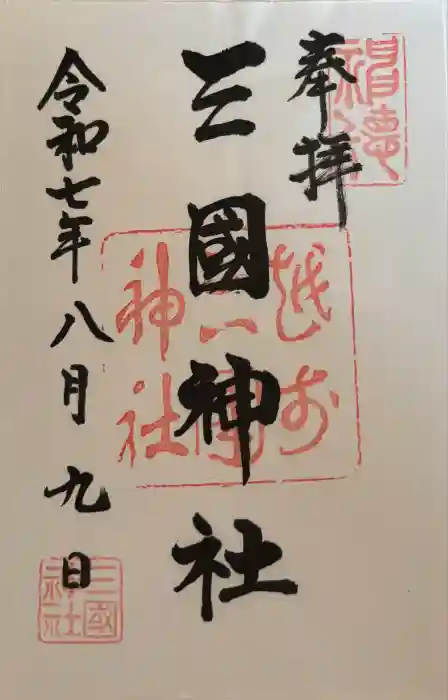 奉拝
三國神社
令和七年八月九日
神徳
越前
三國
神社
三國
神社